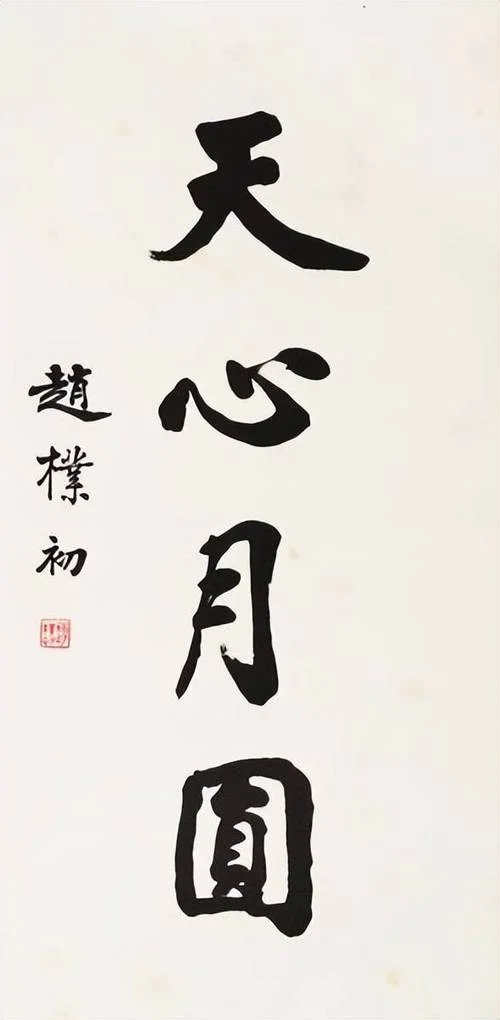 天心月圓
趙樸初